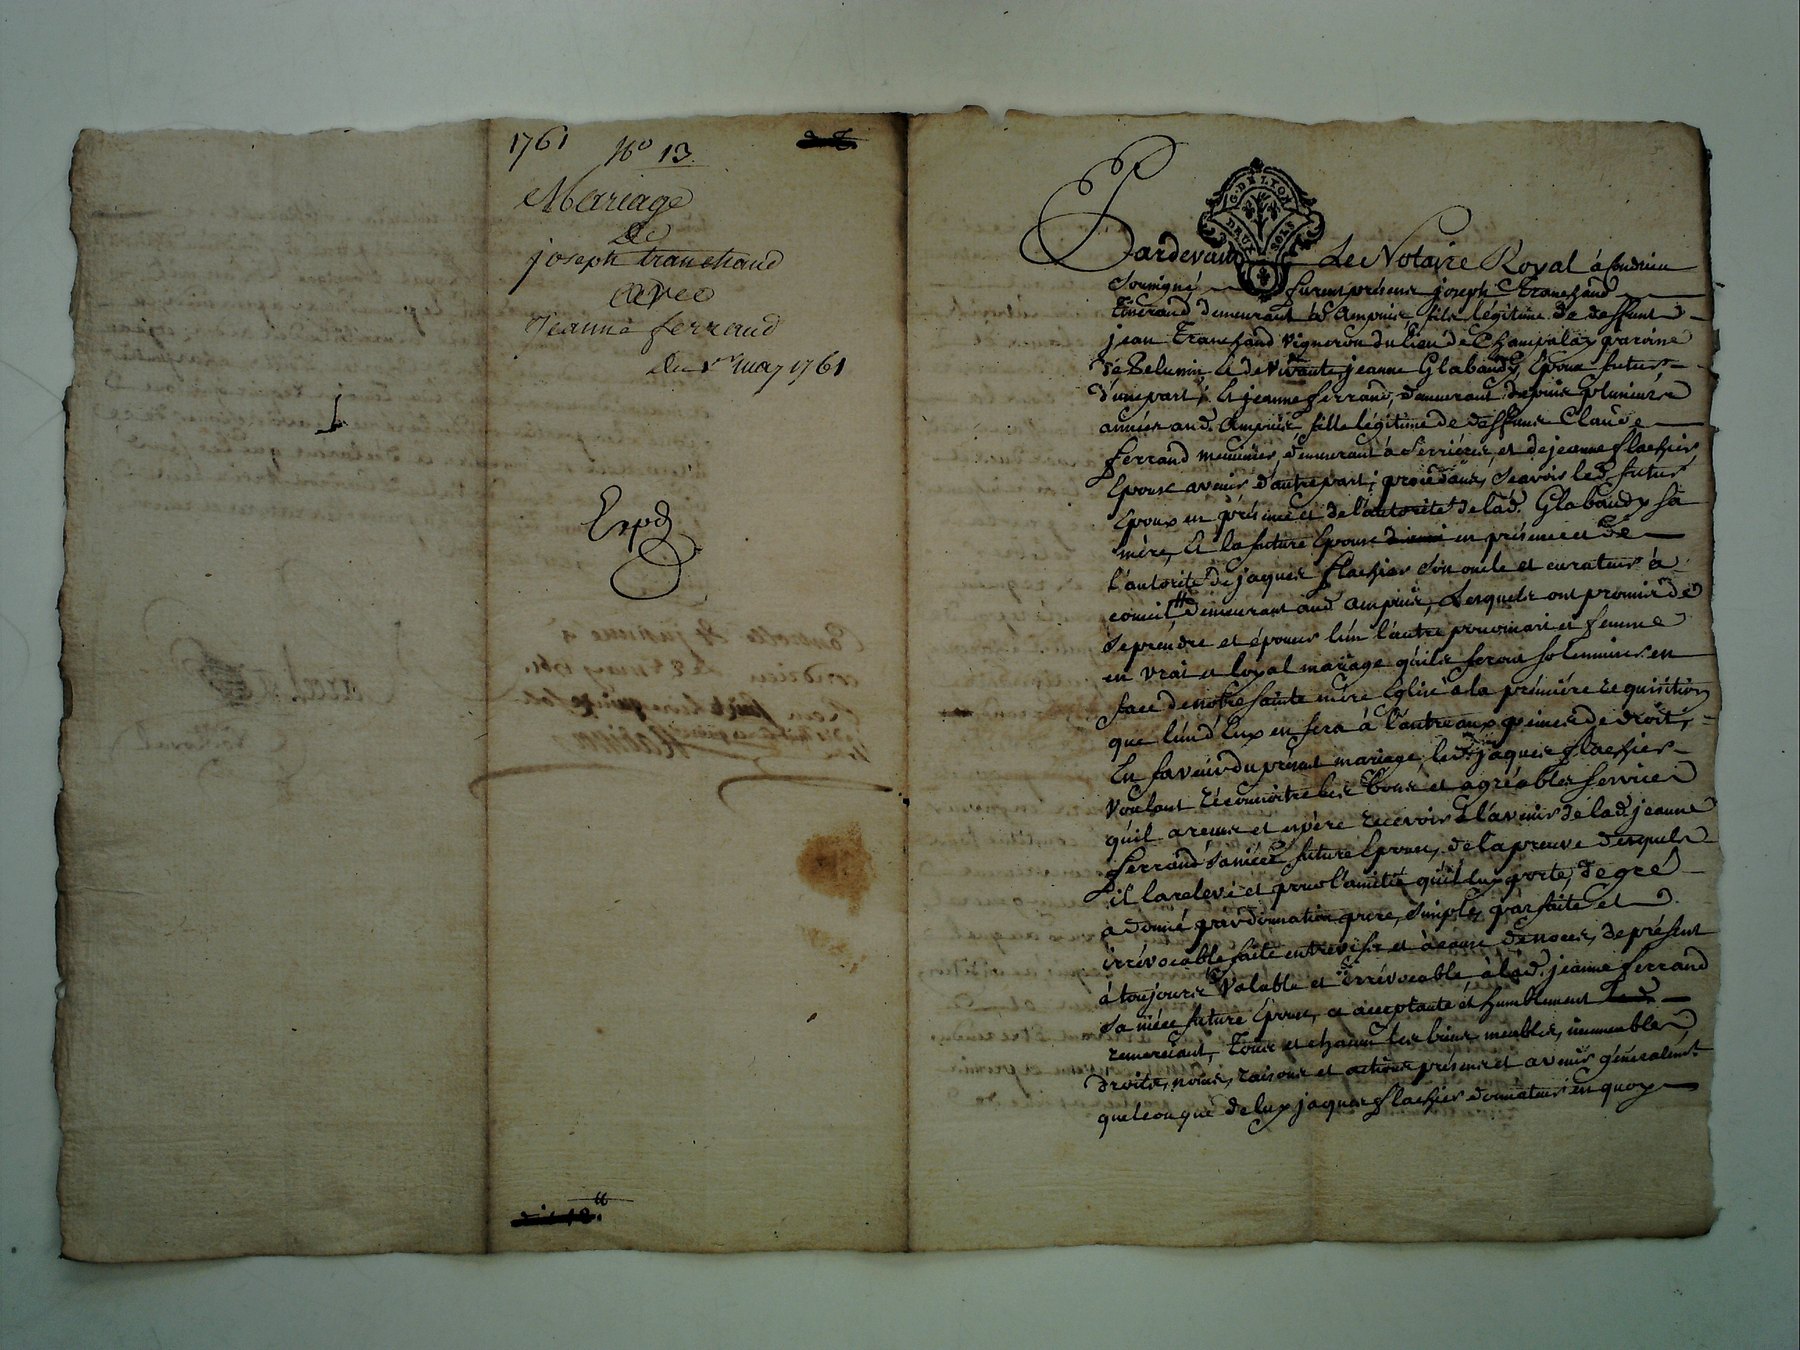 1761 No 13
Mariage
de
joseph tranchand
avec
Jeanne ferrand
du 1er may 1761
Expd
G. DE LYON
DEUX SOLS
Pardevant Le Notaire Royal à Condrieu
Soussigné furent présens joseph Tranchand
Tisserand demeurant à Ampuis fils légitime de deffunt
jean Tranchand vigneron du lieu de Champalay paroisse
de Pelussin & de vivante jeanne Glabaudy, Epoux futur
d'une part, Et jeanne ferrand, demeurant depuis plusieurs
années aud. Ampuis fille légitime de deffunt Claude
ferrand meunier, demeurant à Serrières, et de jeanne flachier
Epouse avenir d'autre part; procédans, sçavoir led. futur
Epoux en présence et de l'autorité de lad. Glabaudy sa
mère, Et la future Epouse en présence et de
l'autorité de jaques flachier son oncle et curateur à
conseil demeurant aud. Ampuis, Lesquels ont promis de
se prendre et épouser l'un l'autre pour mari et femme
en vrai et loyal mariage qu'ils feront solemniser en
face de notre sainte mère Eglise à la première requisition
que l'un d'Eux en fera à l'autre aux peines de droit;
En faveur du présent mariage, led. jaques flachier
voulant reconnoitre les bons et agréables services
qu'il a reçus et espère recevoir à l'avenir de lad. jeanne
ferrand sa nièce future Epouse, de la preuve desquels
il la relevé et pour l'amitié qu'il luy porte, de gré
a donné par donation pure, simple, parfaite et
irrévocable faite entre vifs et à cause de noces, de présent
à toujours valable et irrévocable à lad. jeanne ferrand
sa nièce future Epouse, ce acceptante et humblement
remerciant, Tous et chacun ses biens meubles, immeubles,
droits, noms, raisons et actions présens et avenir généralemt.
quelconque de luy jaques flachier donnateur en quoy